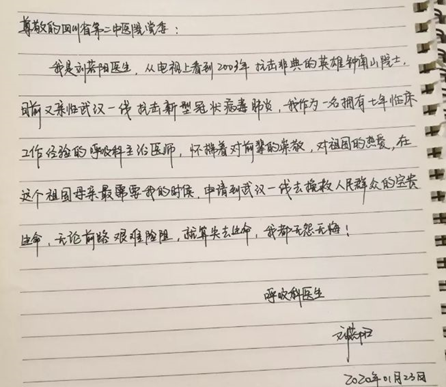 尊敬的四川省第二中医院党委：
我是刘蓉阳医生，从电视上看到2003年抗击非典的英雄钟南山院士，
目前又亲临武汉一线抗击新型冠状病毒肺炎，我作为一名拥有七年临床
工作经验的呼吸科主治医师，怀揣着对前辈的崇敬，对祖国的热爱，在
这个祖国母亲最需要我的时候，申请到武汉一线去拯救人民群众的宝贵
生命，无论前路艰难险阻，就算失去生命，我都无怨无悔！
呼吸科医生
2020年01月23日